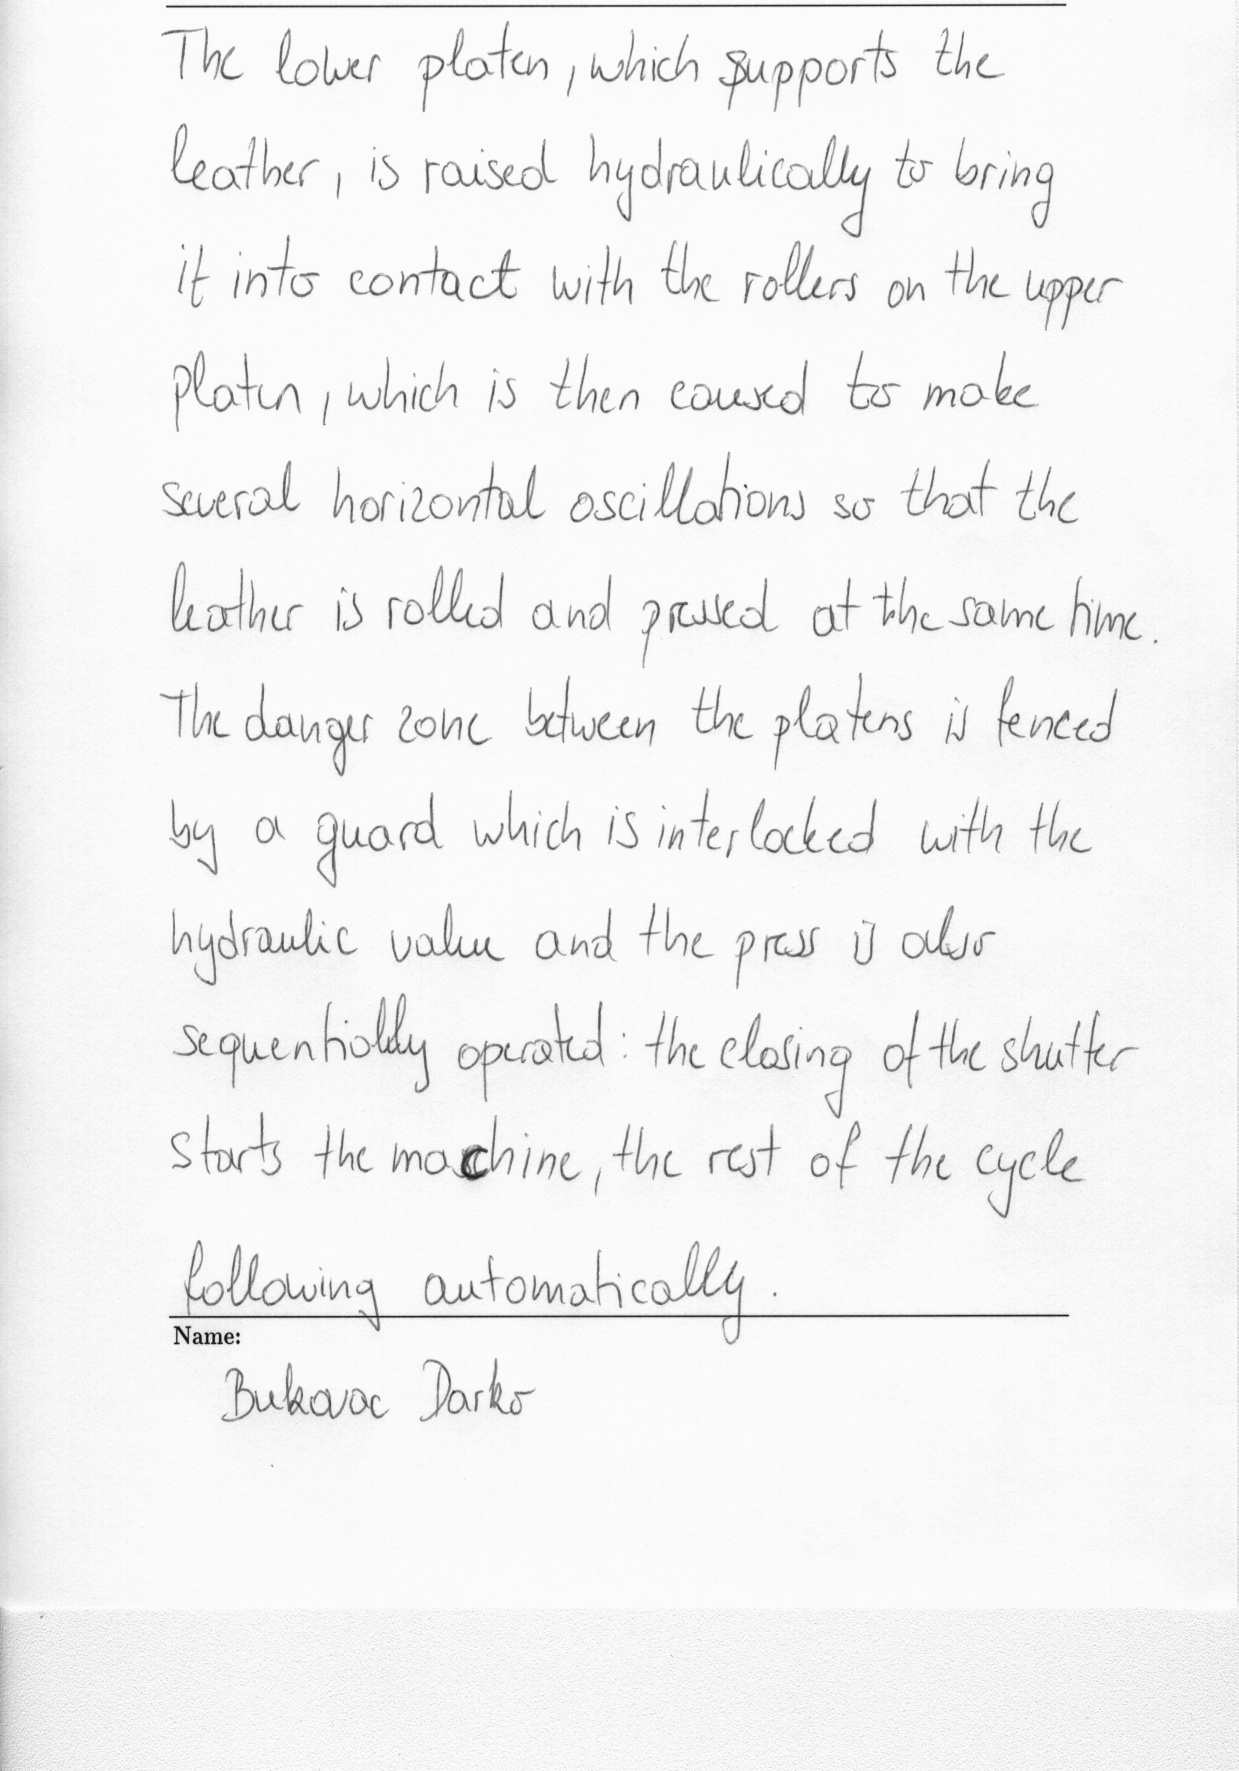 The lower platen, which supports the
leather, is raised hydraulically to bring
it into contact with the rollers on the upper
platen, which is then caused to make
several horizontal oscillations so that the
leather is rolled and pressed at the same time.
The danger zone between the platens is fenced
by a guard which is interlocked with the
hydraulic valve and the press is also
sequentially operated: the closing of the shutter
starts the machine, the rest of the cycle
following automatically.
Name:
Bukovac Darko